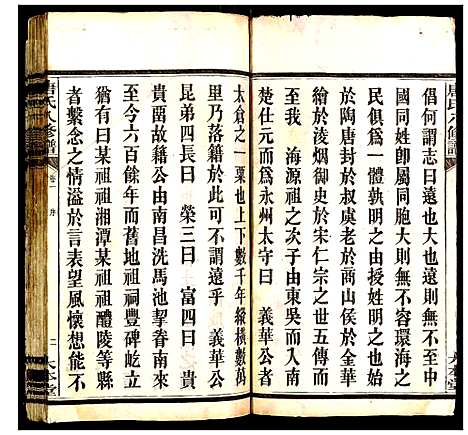 倡何謂志曰遠也大也遠則
國同姓卽屬同胞大不容環海之
民俱爲一體孰明之由唐侯始
於陶唐封於叔虞老於商山侯於金華
繪於淩烟御史於宋仁宗之世五傳而
至我 海源祖之次子由東吳而
楚仕元而爲永州太守曰 義華公者
太倉之一粟也上下數千年縱橫數萬
里乃落籍於此可不謂遠乎 義華公
昆弟四長曰 榮三曰 富四曰 貴
貴而故籍公由南昌洗馬池挈眷南來
至今六百餘年而舊地祖祠豐碑屹立
猶有曰某祖祖湘潭某祖祖醴陵等縣
者繫念之情溢於言表望風懷想能不
唐氏八修譜
卷二 序
二
大本堂